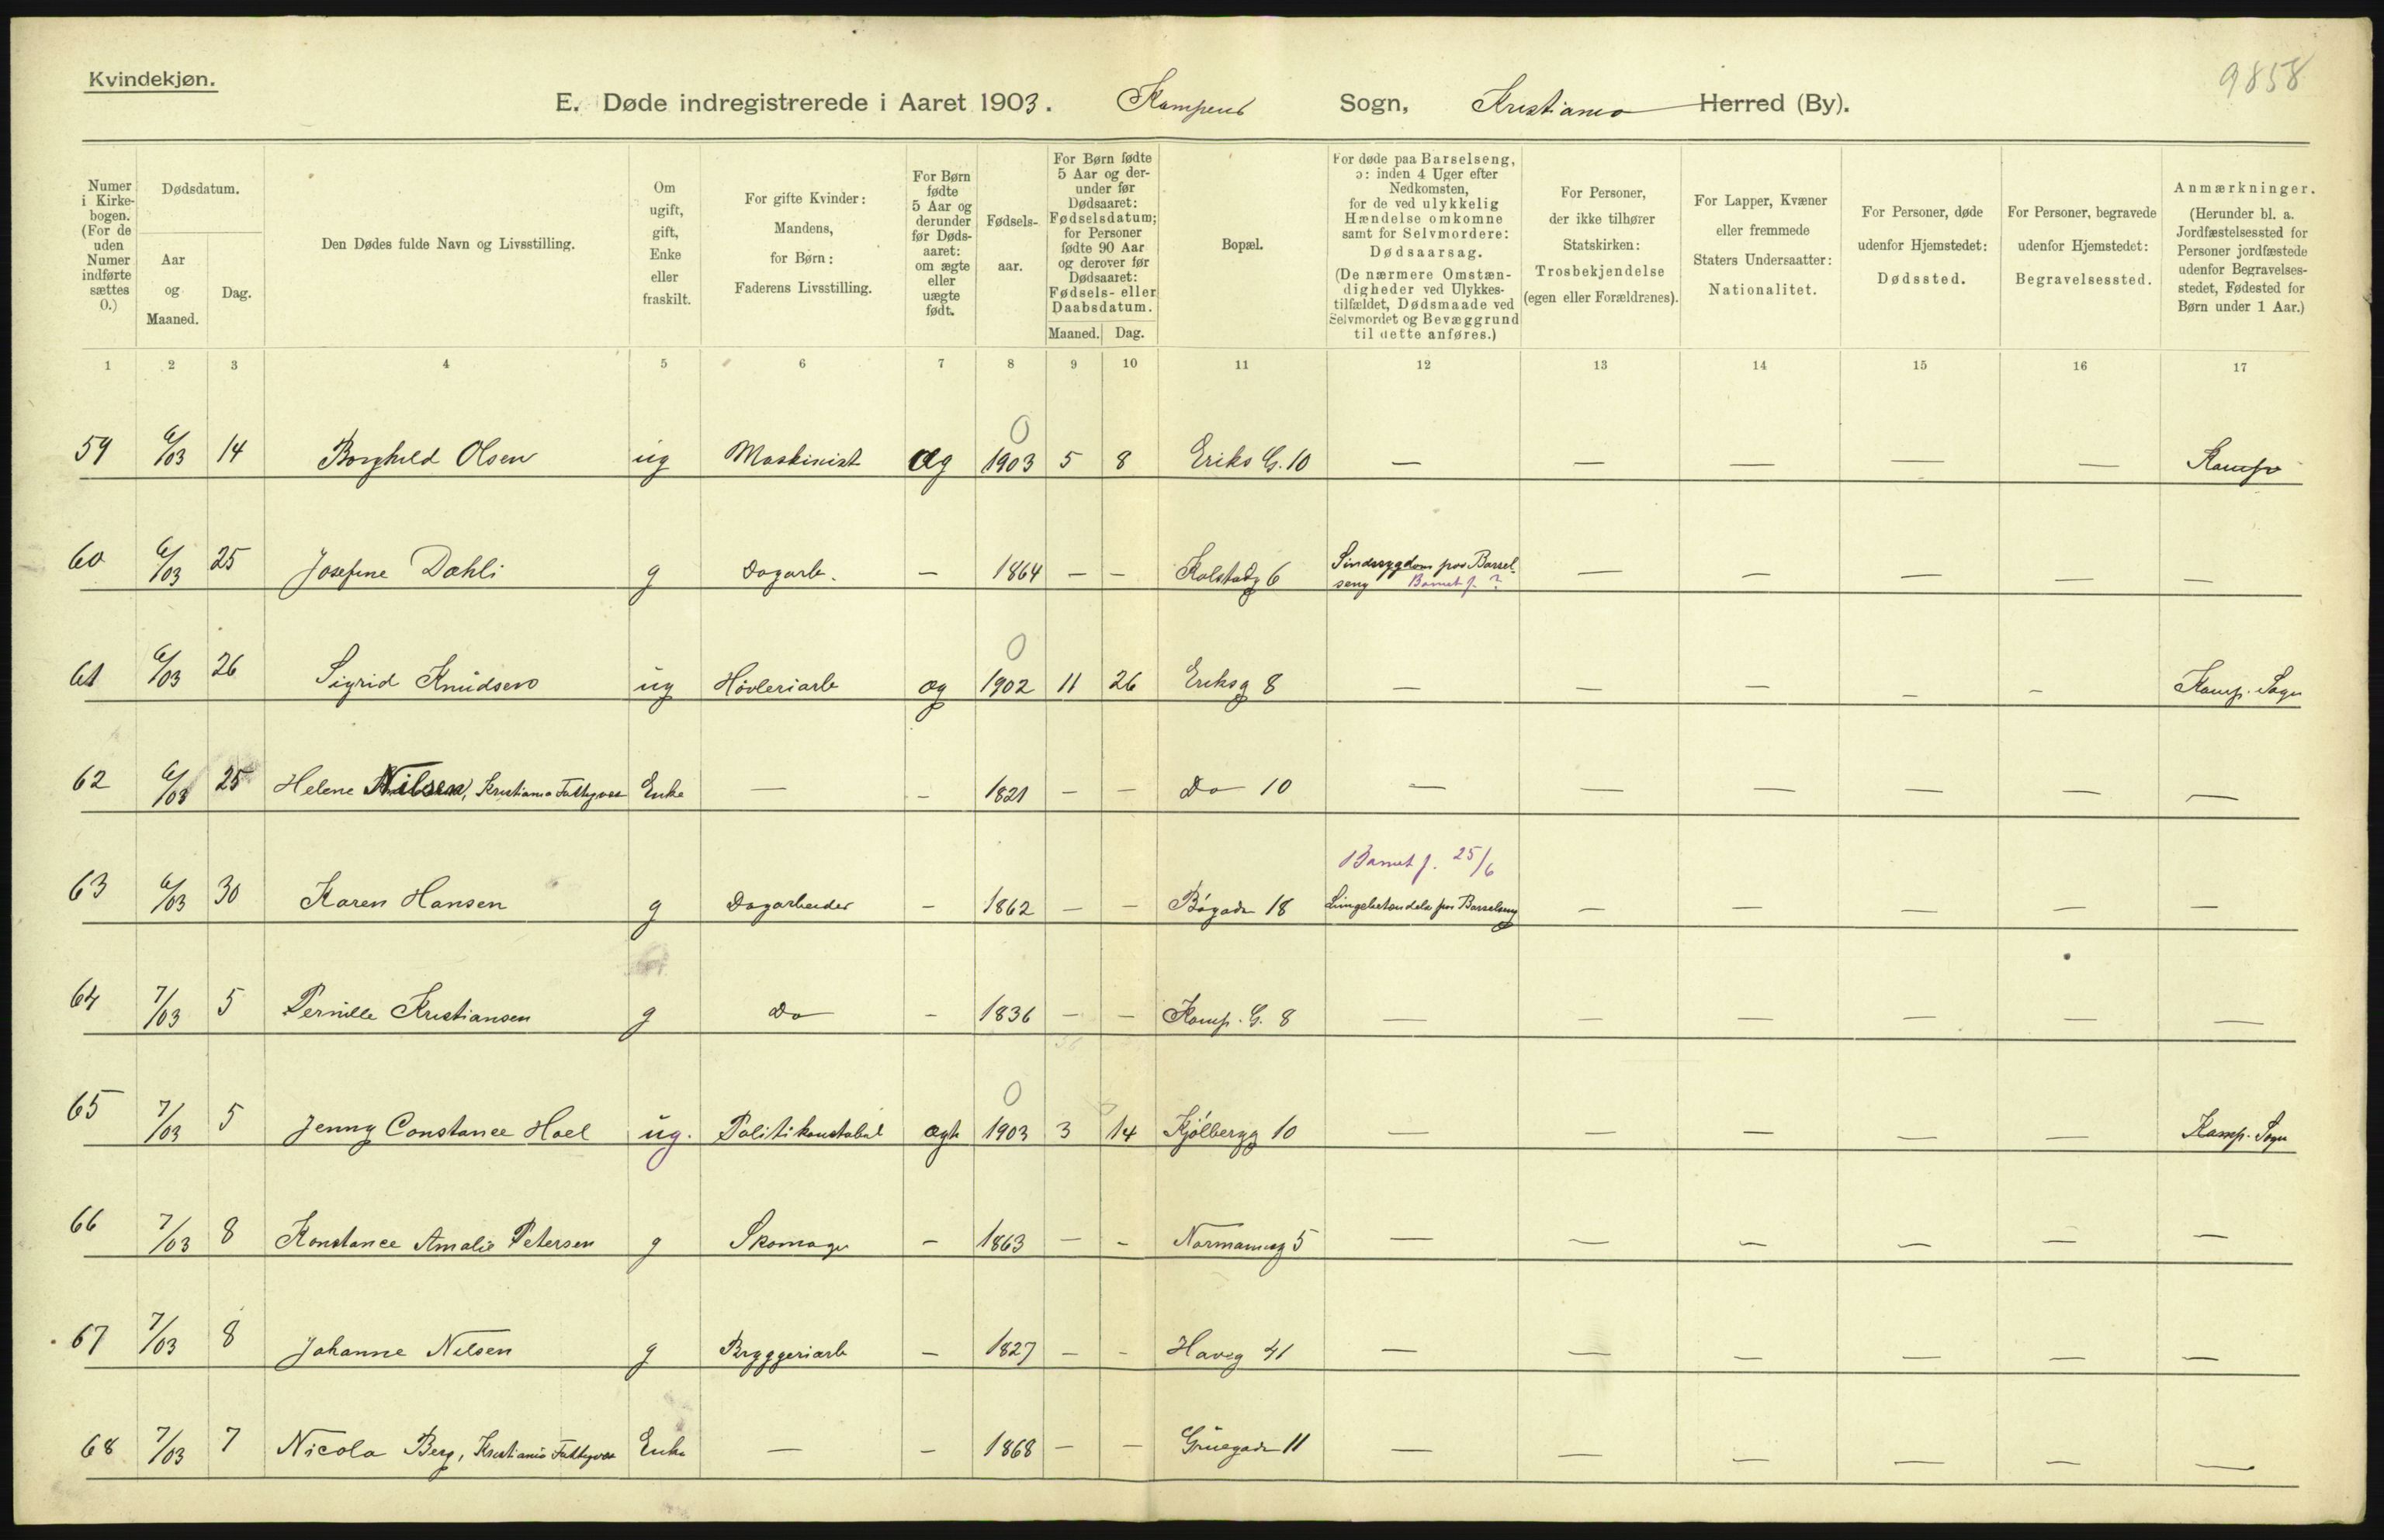 Kvindekjøn.
9858
E. Døde indregistrerede i Aaret 1903. Kampens Sogn, Kristiania Herred (By).
Numer i Kirkebogen. (For de uden Numer indførte sættes 0.)
Dødsdatum.
Aar og Maaned.
Dag.
Den Dødes fulde Navn og Livsstilling.
Om ugift, gift, Enke eller fraskilt.
For gifte Kvinder: Mandens, for Børn: Faderens Livsstilling.
For Børn fødte 5 Aar og derunder før Dødsaaret: om ægte eller uægte født.
Fødselsaar.
For Børn fødte 5 Aar og derunder før Dødsaaret: Fødselsdatum; for Personer fødte 90 Aar og derover før Dødsaaret: Fødsels- eller Daabsdatum.
Maaned. Dag.
Bopæl.
For døde paa Barselseng, ɔ: inden 4 Uger efter Nedkomsten, for de ved ulykkelig Hændelse omkomne samt for Selvmordere: Dødsaarsag. (De nærmere Omstændigheder ved Ulykkestilfældet, Dødsmaade ved Selvmordet og Bevæggrund til dette anføres.)
For Personer, der ikke tilhører Statskirken: Trosbekjendelse (egen eller Forældrenes).
For Lapper, Kvæner eller fremmede Staters Undersaatter: Nationalitet.
For Personer, døde udenfor Hjemstedet: Dødssted.
For Personer, begravede udenfor Hjemstedet: Begravelsessted.
Anmærkninger. (Herunder bl. a. Jordfæstelsessted for Personer jordfæstede udenfor Begravelsesstedet, Fødested for Børn under 1 Aar.)
1 2 3 4 5 6 7 8 9 10 11 12 13 14 15 16 17
0
59 6/03 14 Borghild Olsen ug Maskinist æg 1903 5 8 Eriks G. 10 — — — — — Kamp.
60 6/03 25 Josefine Dahli g Dagarb. — 1864 — — Kolstadg 6 Sindssygdom paa Barselseng Barnet f. ? — — — — —
0
61 6/03 26 Sigrid Knudsen ug Høvleriarb æg 1902 11 26 Eriksg 8 — — — — — Kamp. Sogn
62 6/03 25 Helene Nilsen, Kristiania Fattigvæs Enke — — 1821 — — Do 10 — — — — — —
Barnet f. 25/6
63 6/03 30 Karen Hansen g Dagarbeider — 1862 — — Bøgade 18 Lungebetændelse paa Barselseng — — — — —
64 7/03 5 Pernille Kristiansen g Do — 1836 — — Kamp. G. 8 — — — — — —
0
65 7/03 5 Jenny Constance Hoel ug. Politikonstabel ægte 1903 3 14 Kjølbergg 10 — — — — — Kamp. Sogn
66 7/03 8 Konstance Amalie Petersen g Skomager — 1863 — — Normannsg 5 — — — — — —
67 7/03 8 Johanne Nilsen g Bryggeriarb — 1827 — — Haveg 41 — — — — — —
68 7/03 7 Nicola Berg, Kristiania Fattigvæs Enke — — 1868 — — Gruegade 11 — — — — — —